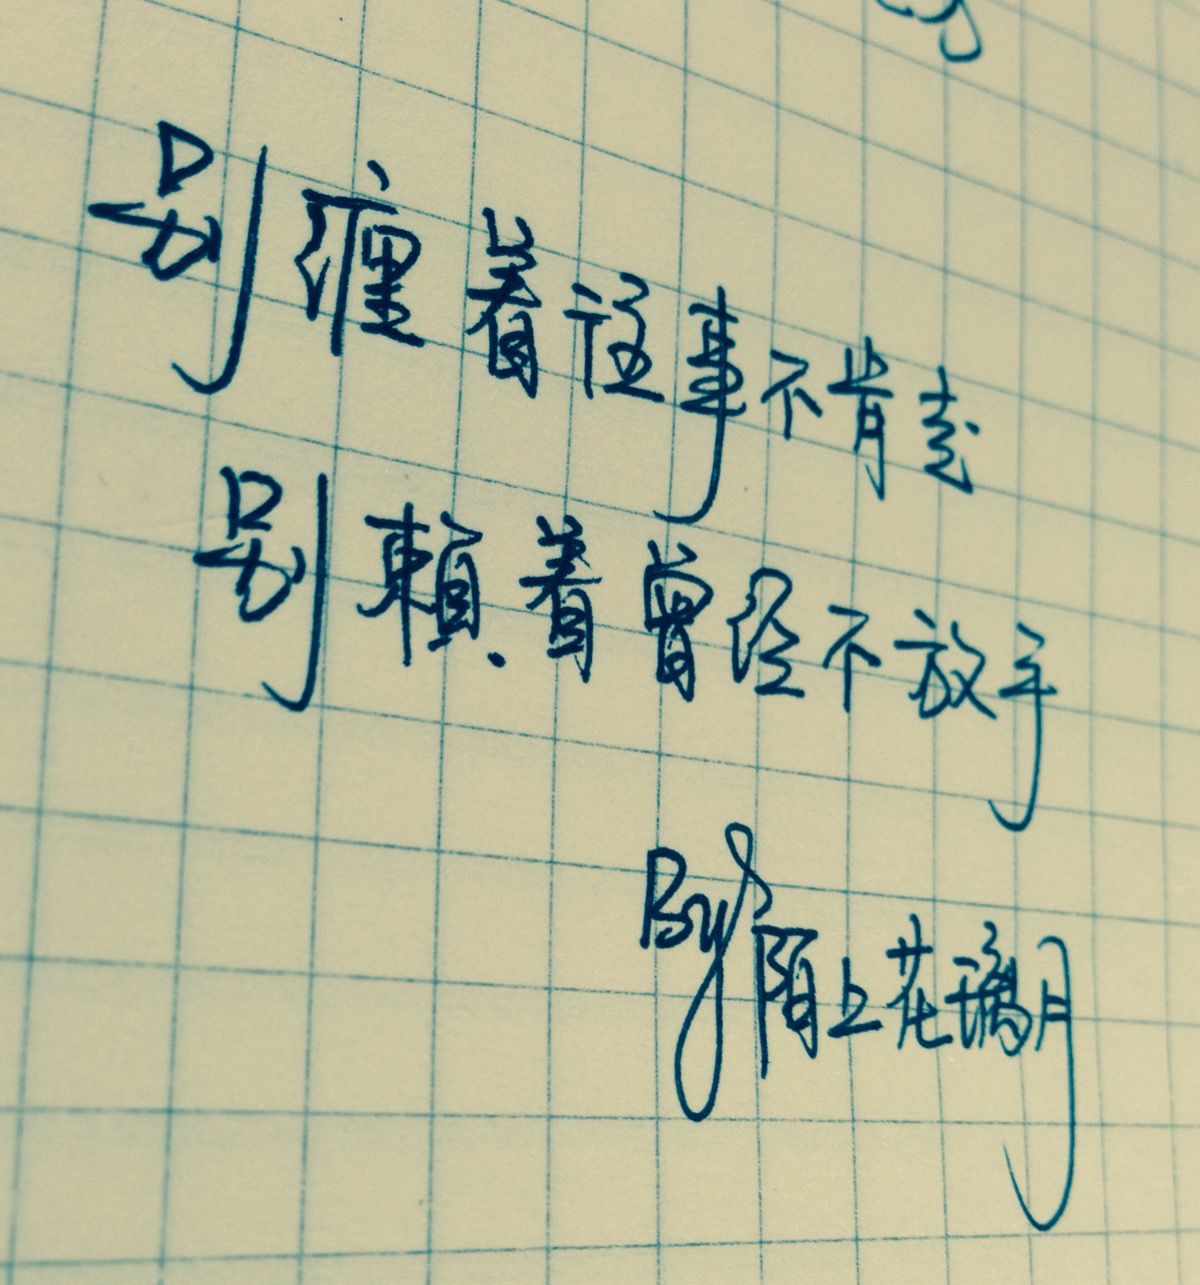 别缠着往事不肯走
别赖着曾经不放手
By 陌上花璃月